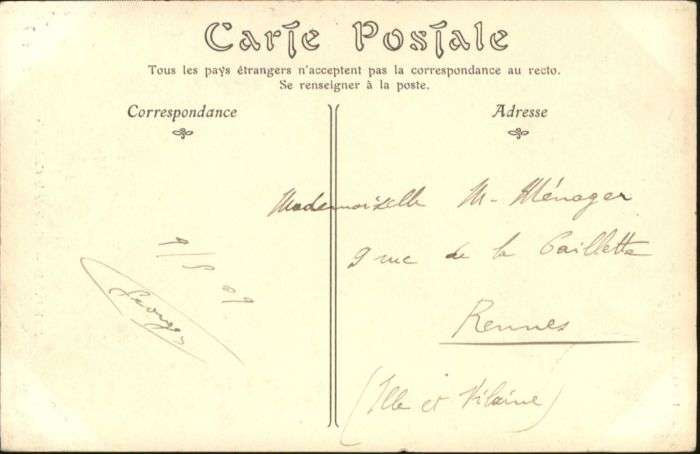 Carte Postale
Tous les pays étrangers n'acceptent pas la correspondance au recto.
Se renseigner à la poste.
Correspondance
Adresse
Mademoiselle M. Ménager
9 rue de la Paillette
Rennes
(Ille et Vilaine)
9/5 09
Georges